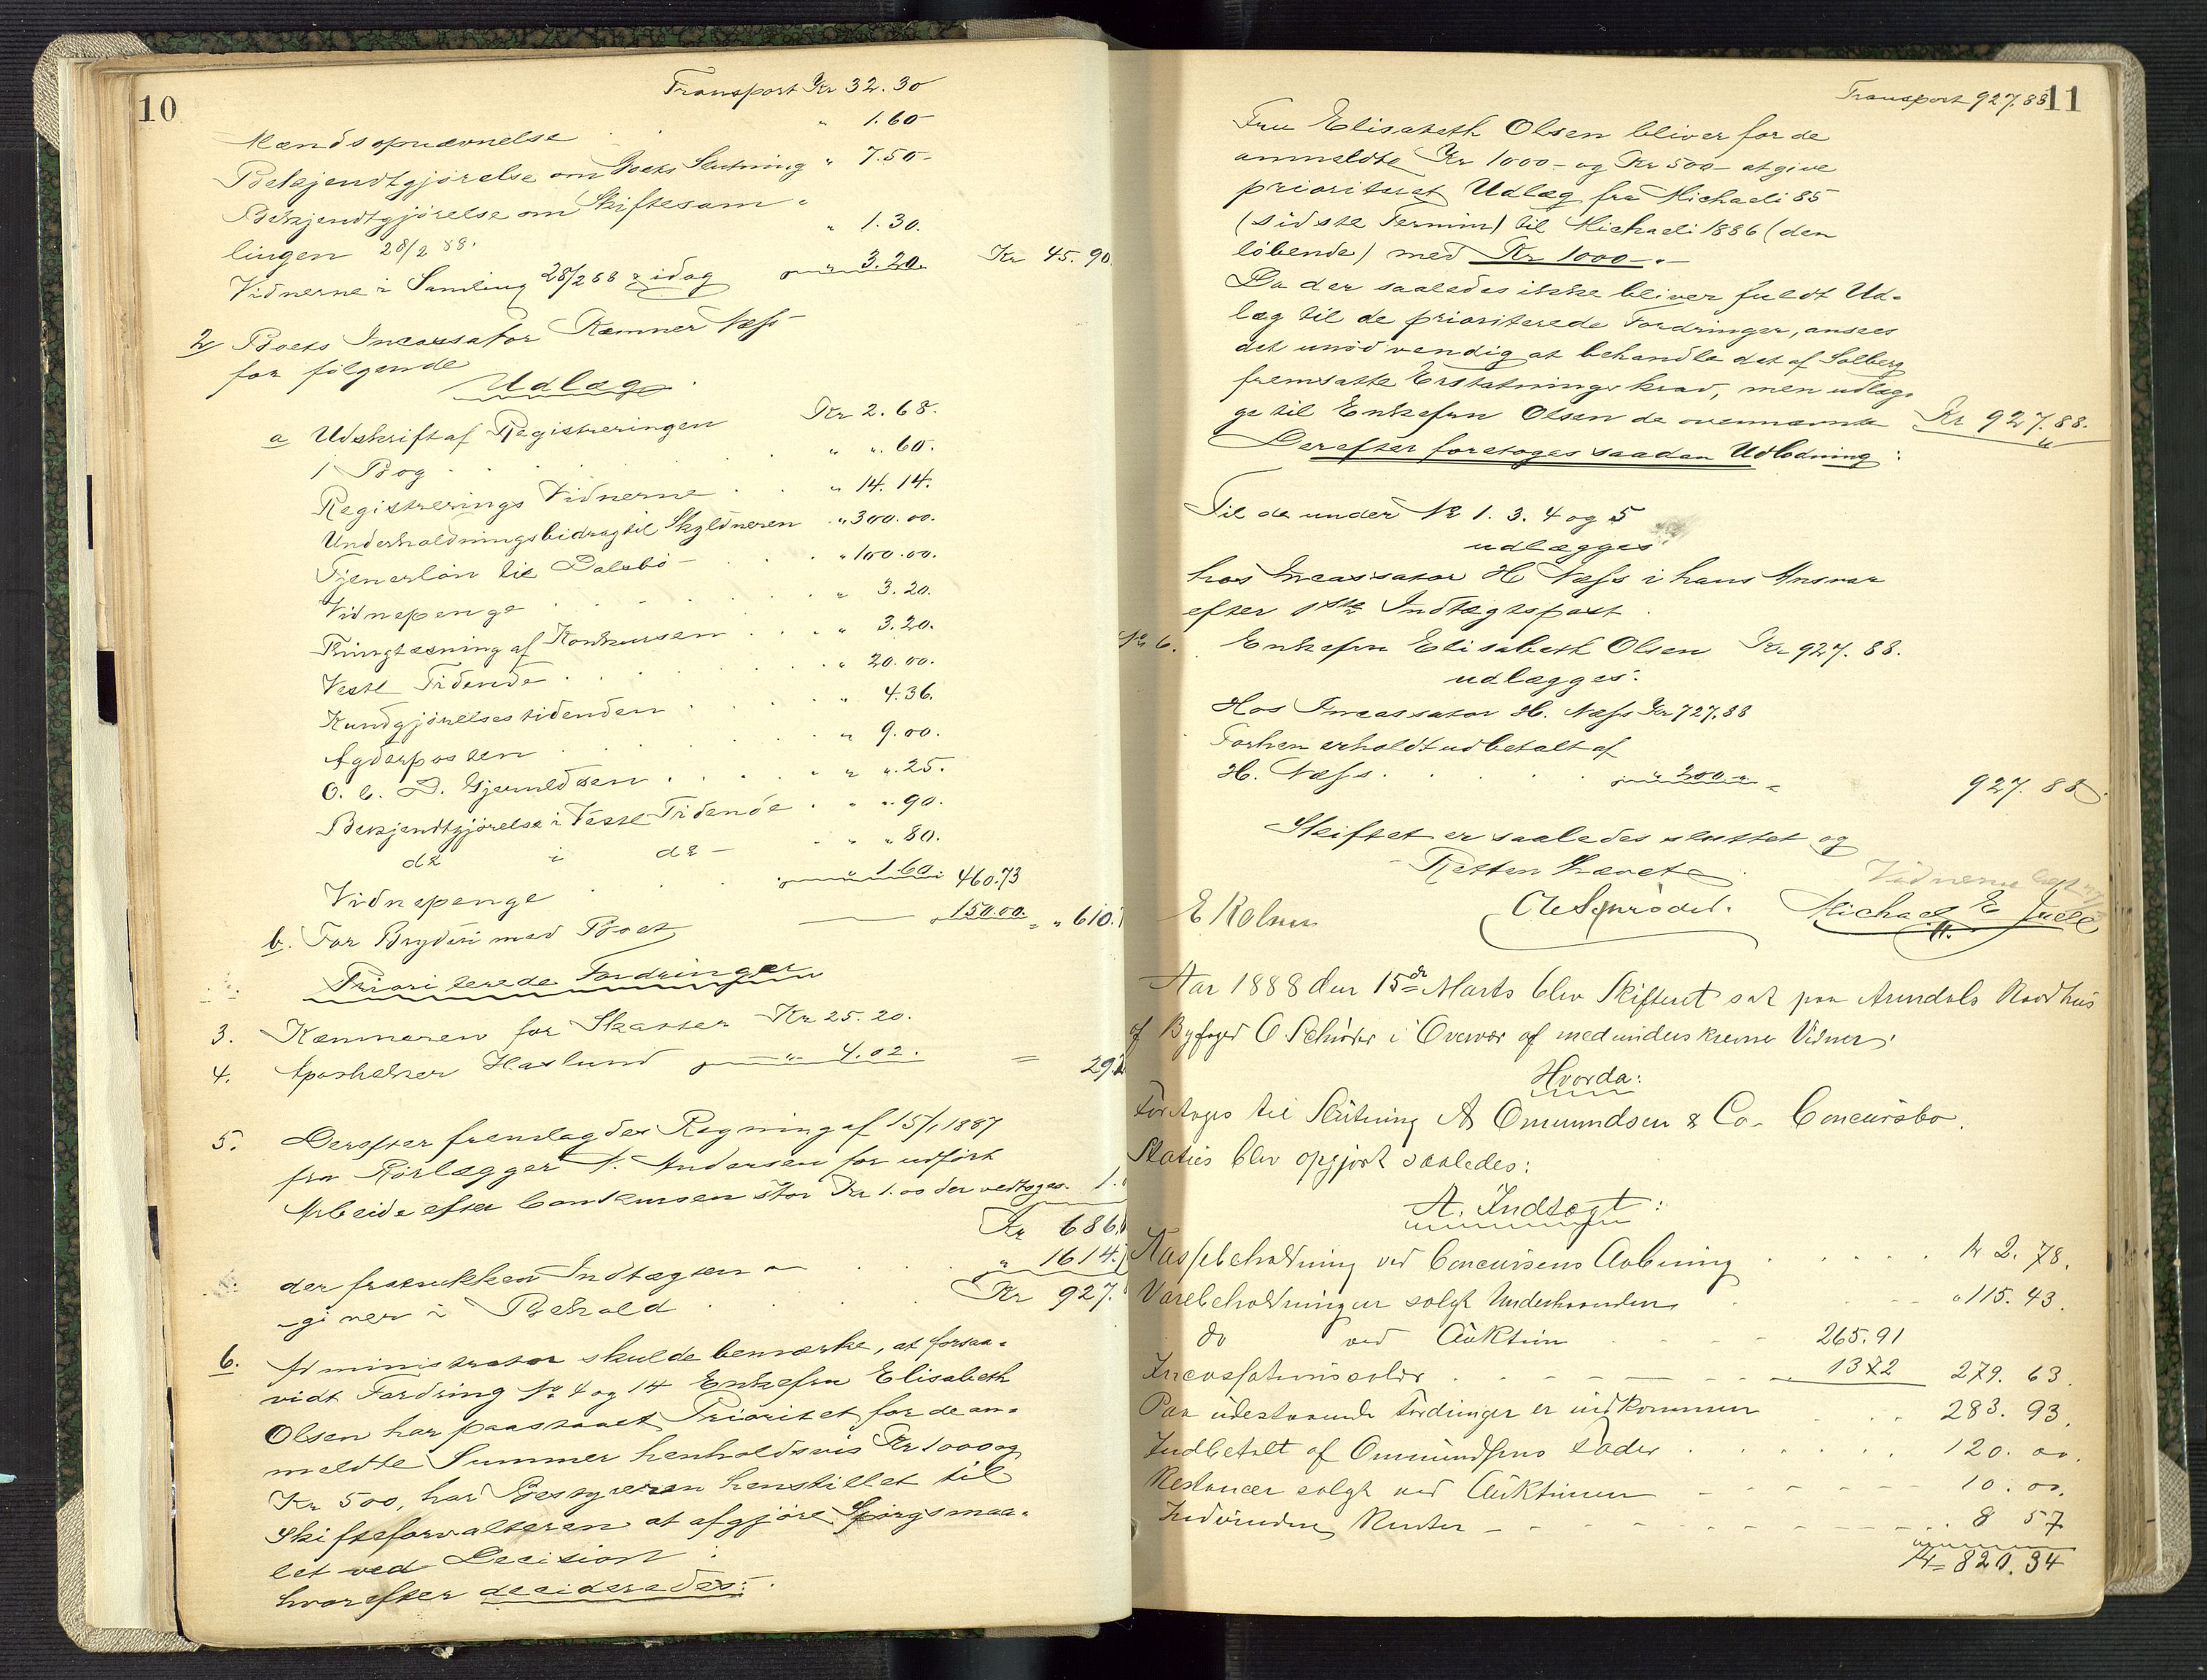 10
Transport Kr 32.30
Mændsopnævnelse " 1.60
Bekjendtgjørelse om Boets Slutning " 7.50
Bekjendtgjørelse om Skiftesam-
lingen 28/2 88. " 1.30.
Vidnerne i Samling 28/2 88 & idag " 3.20. Kr 45.90
2 Boets Incassator Kæmner Næss
for følgende
Udlæg
a Udskrift af Registreringen Kr 2.68.
1 Bog " ".60.
Registrerings Vidnerne " 14.14.
Underholdningsbidrag til Skyldneren " 300.00.
Tjenerløn til Dalebø " 100.00.
Vidnepenge " 3.20.
Thinglæsning af Konkursen " 3.20.
Vestl Tidende " 20.00.
Kundgjørelsestidenden " 4.36.
Agderposten " 9.00.
O. C. D. Gjeruldsen " ".25.
Bekjendtgjørelse i Vestl Tidende " ".90.
do i do " ".80.
Vidnepenge " 1.60. 460.73
b. For Bryderi med Boet 150.00. = " 610.
Prioriterede Fordringer
3. Kæmneren for Skatter Kr 25.20.
4. Apotheker Haslund " 4.02. = 29.
5. Derefter fremlagdes Regning af 15/1 1887
fra Rørlægger A. Andersen for udført
Arbeide efter Conkursen stor Kr 1.00 der vedtoges. 1.
Kr 686.
der fratrukken Indtægten " 1614.
giver i Behold Kr 927.
6. Administrator skulde bemærke, at forsaa-
vidt Fordring No 4 og 14 Enkefru Elisabeth
Olsen har paastaaet Prioritet for de an-
meldte Summer henholdsvis Kr 1000 og
Kr 500, har Bestyreren henstillet til
Skifteforvalteren at afgjøre Spørgsmaa-
let ved Decision:
hvorefter decideredes:
Transport 927.88 11
Fru Elisabeth Olsen bliver for de
anmeldte Kr 1000 og Kr 500 at give
prioriteret Udlæg fra Michaeli 85
(sidste Termin) til Michaeli 1886 (den
løbende) med Kr 1000.
Da der saaledes ikke bliver fuldt Ud-
læg til de prioriterede Fordringer, ansees
det unødvendig at behandle det af Solberg
fremsatte Erstatningskrav, men udlæg-
ges til Enkefru Olsen de ovennævnte Kr 927.88.
Derefter foretoges saadan Udlodning:
Til de under No 1. 3. 4 og 5
udlægges
hos Incassator H Næss i hans Ansvar
efter 1ste Indtægtspost.
No 6. Enkefru Elisabeth Olsen Kr 927.88.
udlægges:
Hos Incassator H. Næss Kr 727.88
Forhen erholdt udbetalt af
H. Næss " 200 " 927.88
Skiftet er saaledes sluttet og
Retten hævet
Vidnerne bet
E Kolmer C Schrøder. Michael E Juell
Aar 1888 den 15de Marts blev Skifteret sat paa Arendals Raadhus
af Byfoged C Schrøder i Overvær af medunderskrevne Vidner;
Hvorda:
Foretoges til Slutning A Ommundsen & Co. Concursbo.
Status blev opgjort saaledes:
A. Indtægt:
Kassebeholdning ved Concursens Aabning Kr 2.78.
Varebeholdningen solgt Underhaanden " 115.43.
do ved Auktion 265.91
Incassations 1372 279.63.
Paa udestaaende Fordringer er indkommen 283.93.
Indbetalt af Ommundsens Fader 120.00.
Restancer solgt ved Auktionen 10.00.
Indvundne Renter 8 57
Kr 820.34